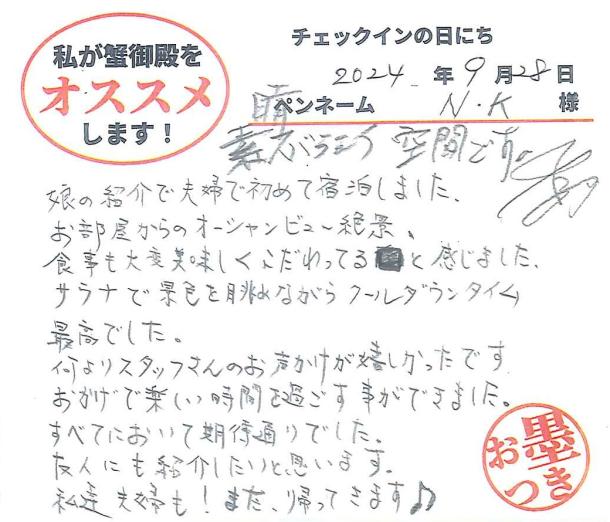 私が蟹御殿を
オススメ
します!
チェックインの日にち
2024年9月28日
ペンネーム N・K 様
晴
素スバラシク 空間です。
娘の紹介で夫婦で初めて宿泊しました。
お部屋からのオーシャンビュー絶景、
食事も大変美味しくこだわってると感じました、
サウナで景色を眺めながらクールダウンタイム
最高でした。
何よりスタッフさんのお声かけが嬉しかったです
おかげで楽しい時間を過ごす事ができました。
すべてにおいて期待通りでした。
友人にも紹介したいと思います。
私達夫婦も!また、帰ってきます♪
お墨つき